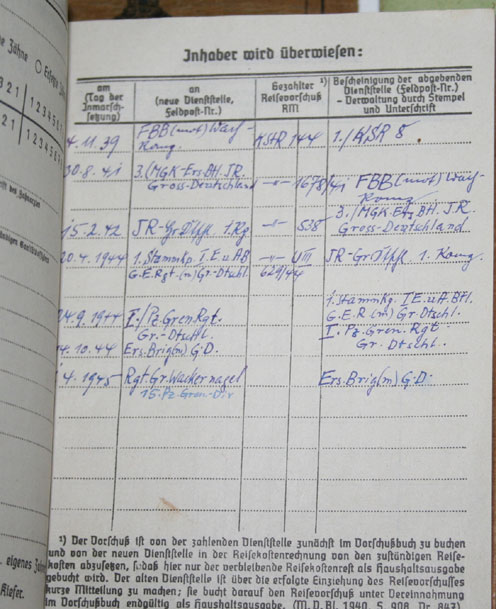 e Zähne
3 2 1 | 1 2 3 4 5
2 1 | 1 2 3 4 5
. eigenes
Kiefer.
Inhaber wird überwiesen:
am
(Tag der
Inmarsch-
setzung)
an
(neue Dienststelle,
Feldpost-Nr.)
Gezahlter ¹)
Reisevorschuß
RM
Bescheinigung der abgebenden
Dienststelle (Feldpost-Nr.)
- Verwaltung durch Stempel
und Unterschrift
4.11.39 FBB (mot) KStR 144 1./KSR 8
30.8.41 3.(MGK-Ers.Btl. J.R. Gross-Deutschland -"- 1678/41 FBB (mot)
15.2.42 JR-Gr. 1. -"- 538 3./MGK-Ers. Btl. J.R. Gross-Deutschland
20.4.1944 1. Stammkp. T.E.u.AB G.E.Rgt (m) Gr-Dtschl. -"- VIII 629/44 JR-Gr. 1.
24.9.1944 I./Pz.Gren.Rgt. Gr.-Dtschl. 1. Stammkp. T.E.u.A.Btl. G.E.R (m) Gr Dtschl.
14.10.44 Ers.Brig(m) G.D. I. Pz. Gren. Rgt. Gr. Dtschl.
4.1945 Rgt Gr. Wackernagel Ers.Brig(m) G.D.
15. Pz. Gren.-Div
¹) Der Vorschuß ist von der zahlenden Dienststelle zunächst im Vorschußbuch zu buchen
und von der neuen Dienststelle in der Reisekostenrechnung von den zuständigen Reise-
kosten abzusetzen, sodaß hier nur der verbleibende Reisekostenrest als Haushaltsausgabe
gebucht wird. Der alten Dienststelle ist über die erfolgte Einziehung des Reisevorschusses
kurze Mitteilung zu machen; sie bucht darauf den Reisevorschuß unter Vereinnahmung
im Vorschußbuch endgültig als Haushaltsausgabe. (H. V. Bl. 1940, S. 408, Nr. 842)